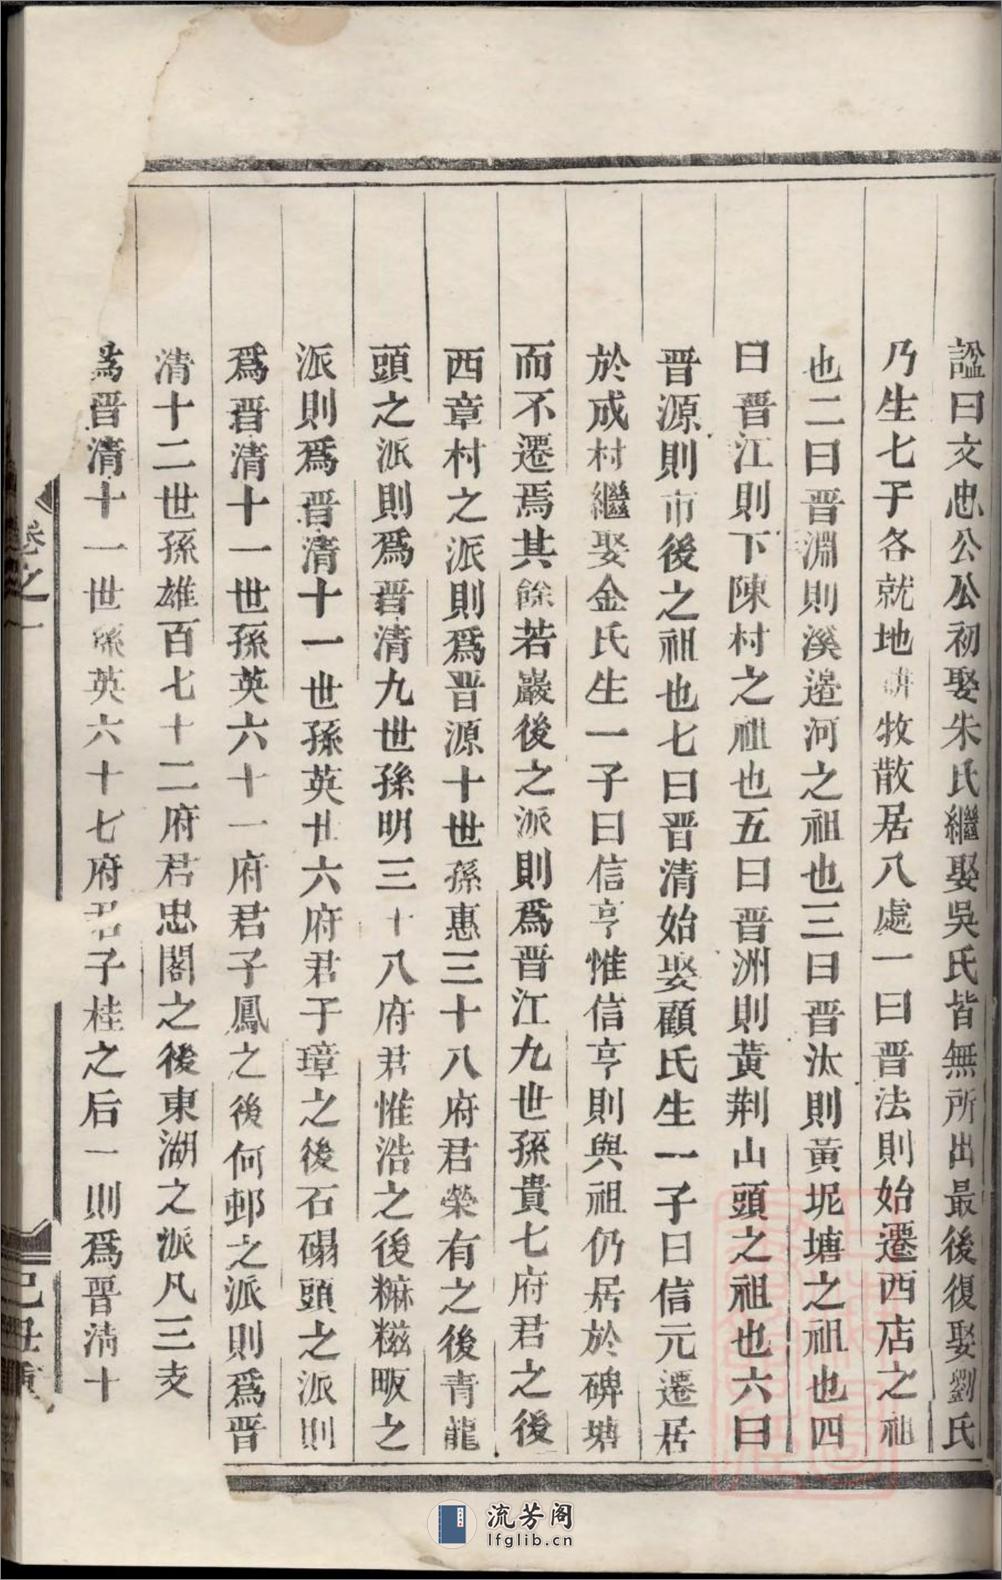 諡曰文忠公公初娶朱氏繼娶吳氏皆無所出最後復娶劉氏
乃生七子各就地耕牧散居八處一曰晋法則始遷西店之祖
也二曰晋淵則溪邉河之祖也三曰晋汰則黃坭塘之祖也四
曰晋江則下陳村之祖也五曰晋洲則黄荆山頭之祖也六曰
晋源則市後之祖也七曰晋清始娶顧氏生一子曰信元遷居
於成村繼娶金氏生一子曰信亨惟信亨則與祖仍居於碑塘
而不遷焉其餘若巖後之派則爲晋江九世孫貴七府君之後
西章村之派則爲晋源十世孫惠三十八府君榮有之後青龍
頭之派則爲晋清九世孫明三十八府君惟浩之後糍畈之
派則爲晋清十一世孫英廿六府君于璋之後石碭頭之派則
爲晋清十一世孫英六十一府君子鳳之後何邨之派則爲晋
清十二世孫雄百七十二府君忠閣之後東湖之派凡三支
爲晋清十一世孫英六十七府君子桂之后一則爲晋清十
卷之一
己丑重
流芳阁
lfglib.cn